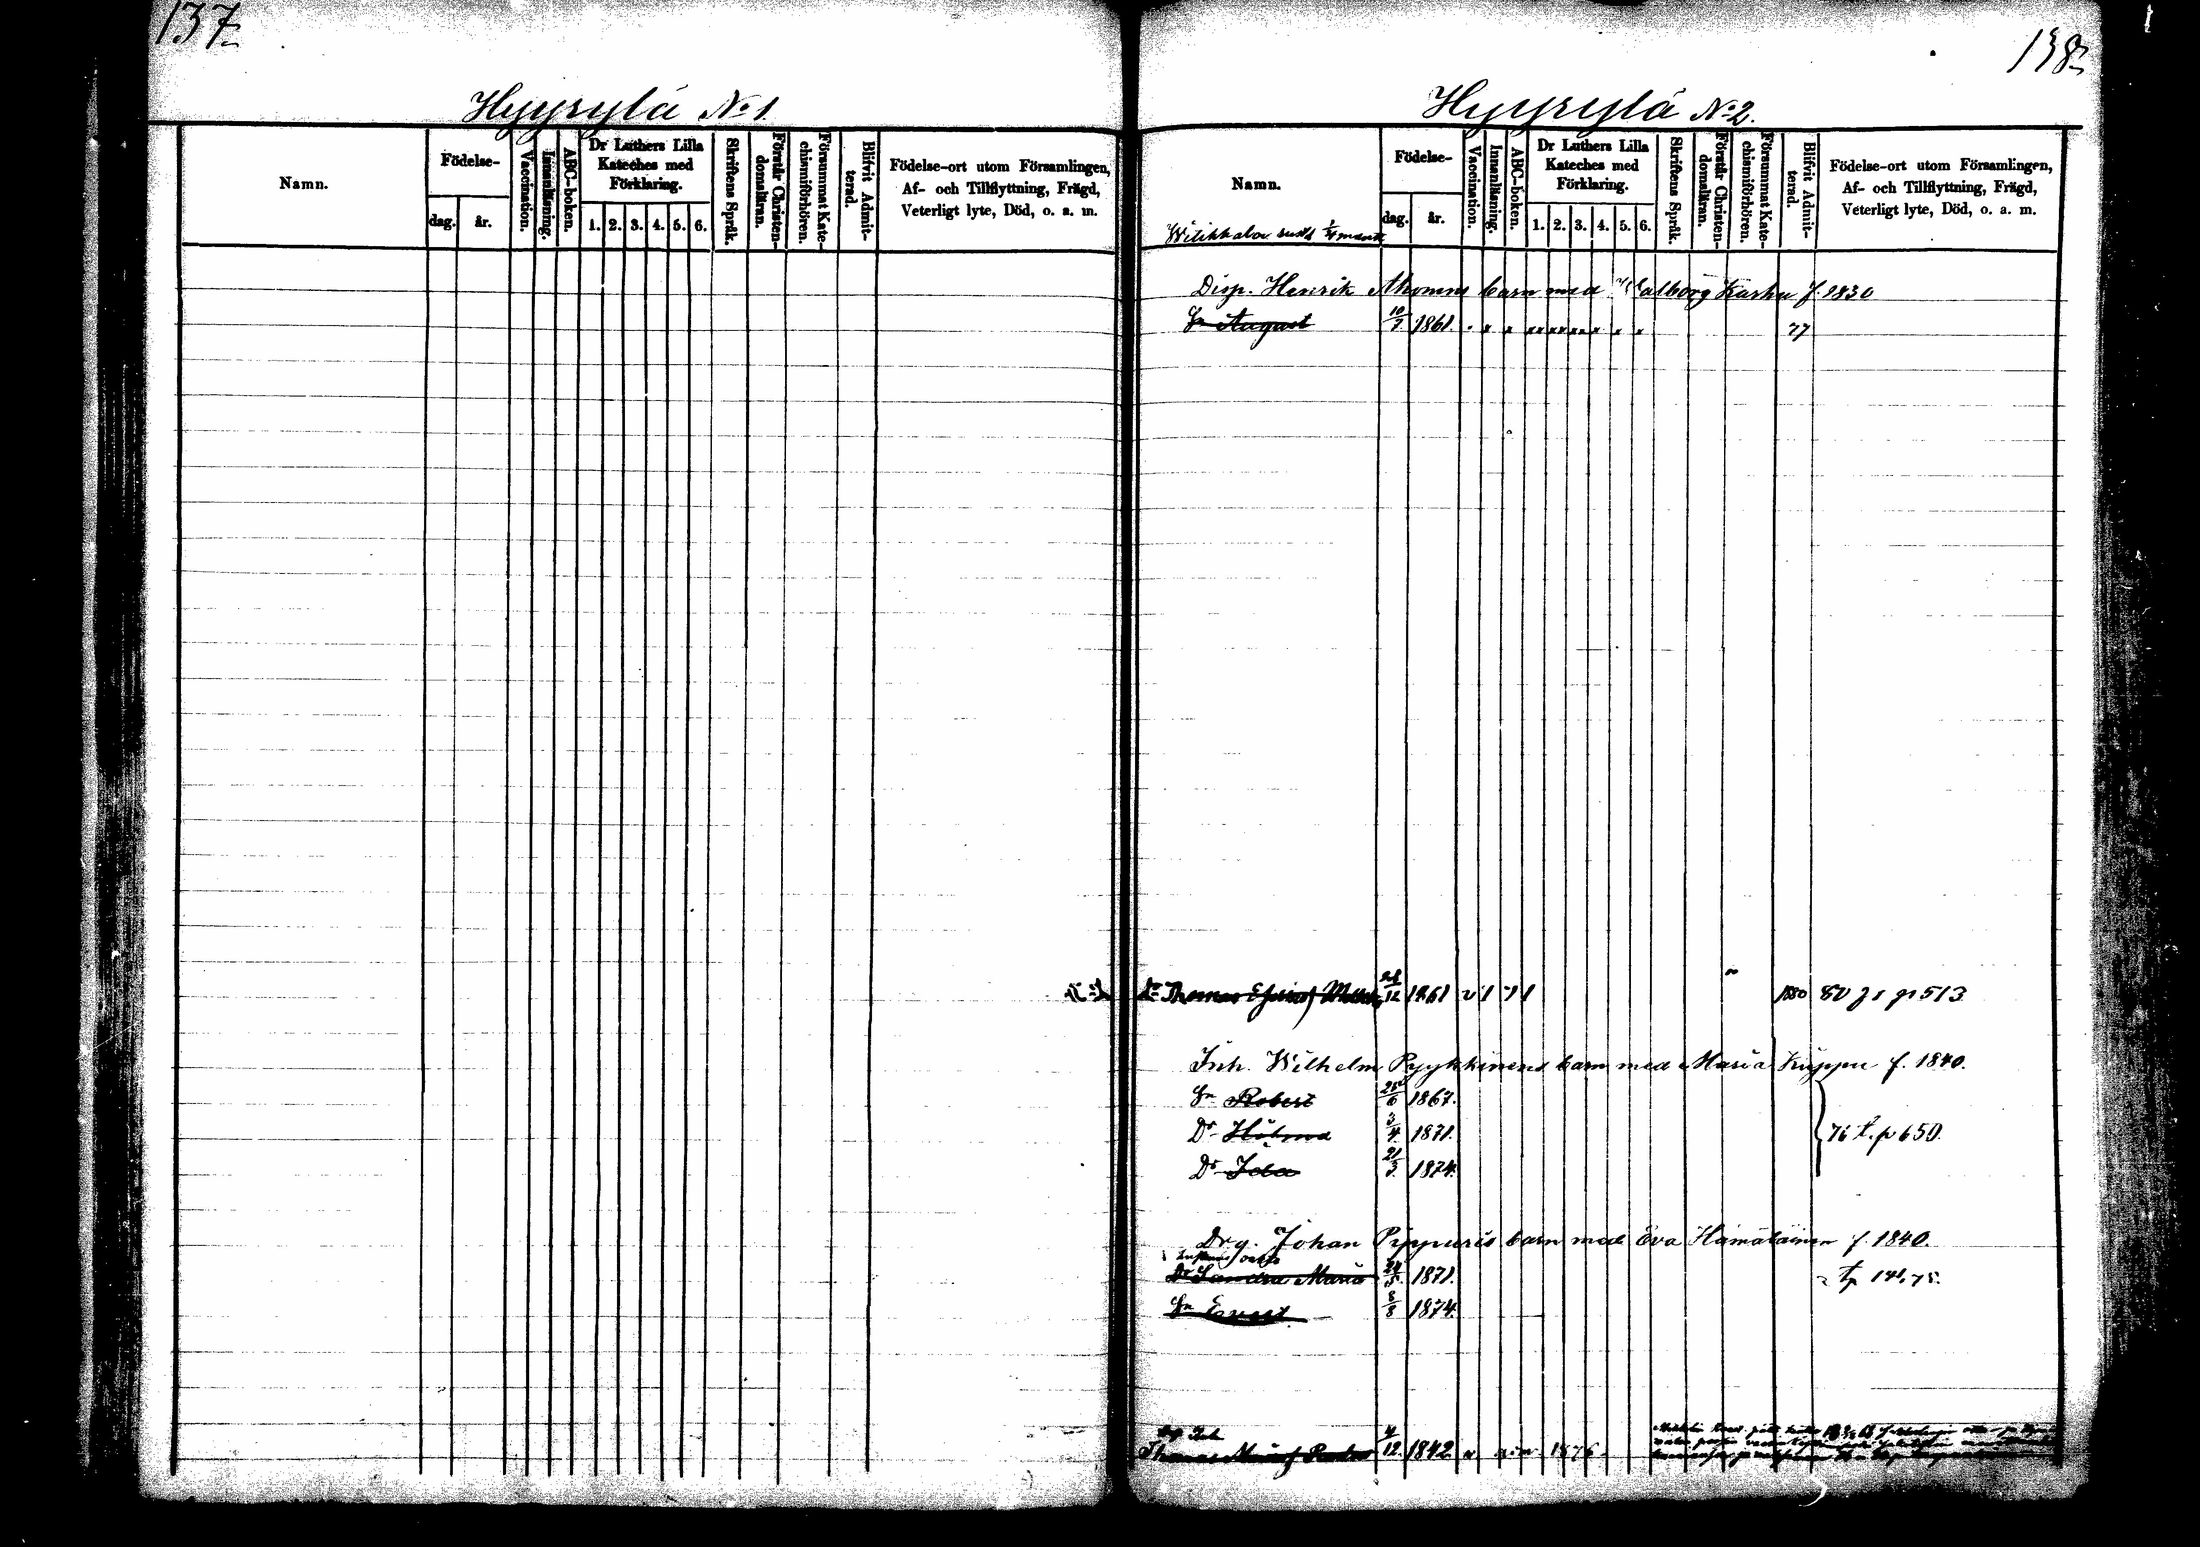 137
Hyyrylä No 1
Namn.
Födelse-
dag.
år.
Vaccination.
Innanläsning.
ABC-boken.
Dr Luthers Lilla
Kateches med
Förklaring.
1. 2. 3. 4. 5. 6.
Skriftens Språk.
Förstår Christen-
domsläran.
Försummat Kate-
chismiförhören.
Blifvit Admit-
terad.
Födelse-ort utom Församlingen,
Af- och Tillflyttning, Frägd,
Veterligt lyte, Död, o. a. m.
138
Hyyrylä No 2.
Namn.
Födelse-
dag.
år.
Vaccination.
Innanläsning.
ABC-boken.
Dr Luthers Lilla
Kateches med
Förklaring.
1. 2. 3. 4. 5. 6.
Skriftens Språk.
Förstår Christen-
domsläran.
Försummat Kate-
chismiförhören.
Blifvit Admit-
terad.
Födelse-ort utom Församlingen,
Af- och Tillflyttning, Frägd,
Veterligt lyte, Död, o. a. m.
Disp. Henrik Ahonens barn med Walborg Karhu f. 1830
Sn August 10/7 1861 77
Dr Thomas 12 1861 v 1880 80 p 513
Inh. Wilhelm Pyykkinens barn med Maria f. 1840.
Sn Robert 25/6 1867.
Dr Hilma 3/4 1871. 76 t. p 650.
Dr Ida 21/3 1874.
Drg. Johan Pippuris barn med Eva Hämäläinen f. 1840.
Dr Sandra Maria 24/5 1871. tp 141, 75.
Sn 8/8 1874.
Thomas 12. 1842 1876